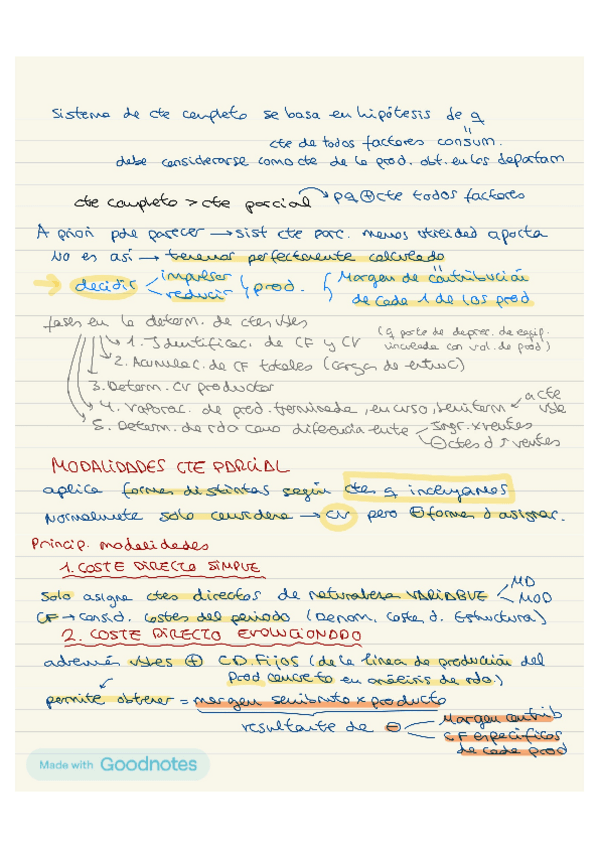 Sistema de cte completo se basa en hipótesis de q
"
cte de todos factores consum.
debe considerarse como cte de la prod. obt. en los departam
cte completo > cte parcial → pq ⊕ cte todos factores
A priori pde parecer → sist cte parc. menos utilidad aporta
No es así → tenemos perfectamente calculado
→ decidir < impulsar reducir } prod. { Margen de contribución
de cada 1 de los prod
fases en la determ. de ctes vbles
→ 1. Identificac. de CF y CV (q parte de deprec. de equip. vinculada con vol. de prod)
→ 2. Acumulac. de CF totales (cargas de estruc)
3. Determ. CV productor
4. Valorac. de prod. terminada, en curso, semiterm → a cte vble
5. Determ. de rdo como diferencia ente < Ingr. x ventes
⊖ ctes d ↑ ventes
MODALIDADES CTE PARCIAL
aplica formas distintas según ctes q incluyamos
Normalmente solo considera → CV pero ⊕ formas d asignar.
Princip. modalidades
1. COSTE DIRECTO SIMPLE
Solo asigna ctes directos de naturaleza VARIABLE < MD MOD
CF → consid. costes del periodo (Denom. Coste d. Estructura)
2. COSTE DIRECTO EVOLUCIONADO
además vbles ⊕ CD. Fijos (de la línea de producción del
prod concreto en análisis de rdo.)
permite obtener = margen semibruto x producto
resultante de ⊖ < Margen contrib
CF específicos
de cada prod
Made with Goodnotes